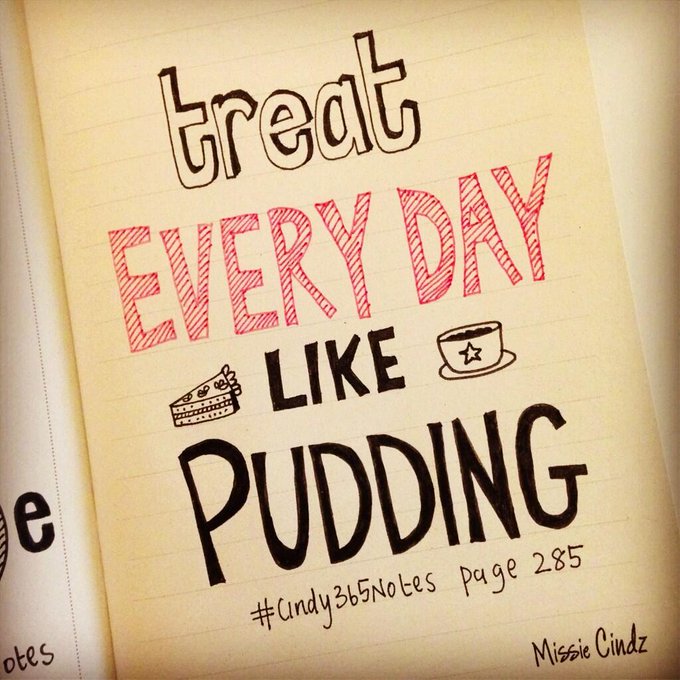 treat
EVERY DAY
LIKE
PUDDING
#Cindy365Notes page 285
Missie Cindz
e
otes